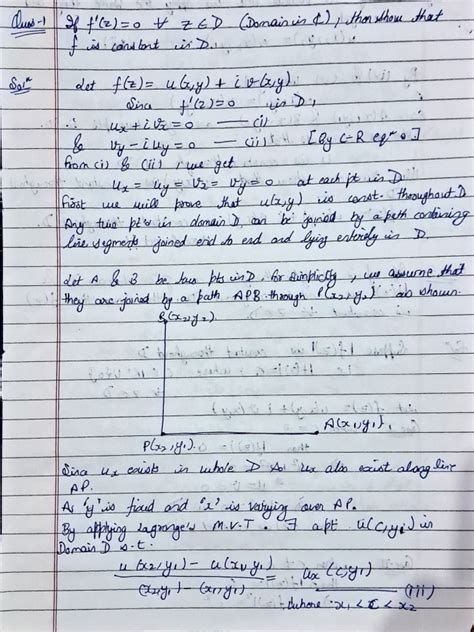 Ques-1 If f'(z)=0 ∀ z ∈ D (Domain in ℂ), then show that
f is constant in D.
Solⁿ Let f(z) = u(x,y) + i v(x,y)
Since f'(z)=0 in D,
∴ ux + i vx = 0 — (i)
& vy - i uy = 0 — (ii) [By C-R eqⁿs]
from (i) & (ii), we get
ux = uy = vx = vy = 0 at each pt in D
First we will prove that u(x,y) is const. throughout D
Any two pts in domain D, can be joined by a path containing
line segments joined end to end and lying entirely in D.
Let A & B be two pts in D, for simplicity, we assume that
they are joined by a path APB through P(x2,y1) as shown.
B(x2,y2)
A(x1,y1)
P(x2,y1)
Since ux exists in whole D so ux also exist along line
AP.
As 'y' is fixed and 'x' is varying over AP.
By applying lagrange's M.V.T. ∃ a pt (c,y1) in
Domain D s.t.
u(x2,y1) - u(x1,y1) / (x2,y1) - (x1,y1) = ux (c,y1) — (iii)
where x1 < c < x2